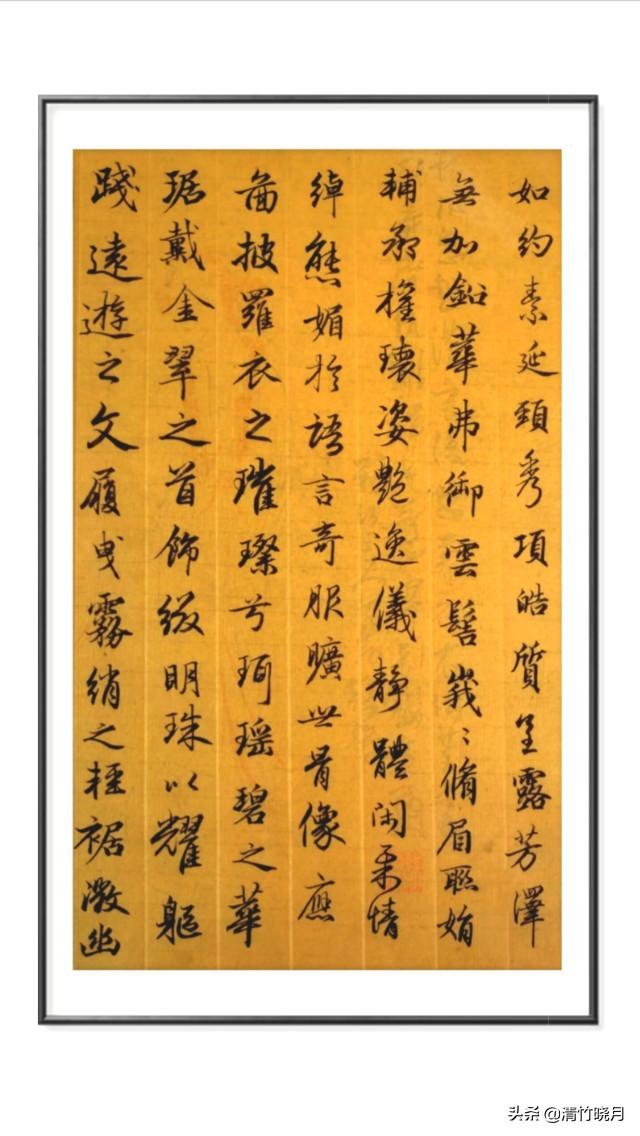 如約素延頸秀項皓質呈露芳澤
無加鉛華弗御雲髻峩〻脩眉聯娟
輔承權瓌姿艷逸儀靜體閑柔情
綽態媚於語言奇服曠世骨像應
圖披羅衣之璀璨兮珥瑤碧之華
琚戴金翠之首飾綴明珠以耀軀
踐遠遊之文履曳霧綃之輕裾微幽
头条 @清竹晓月